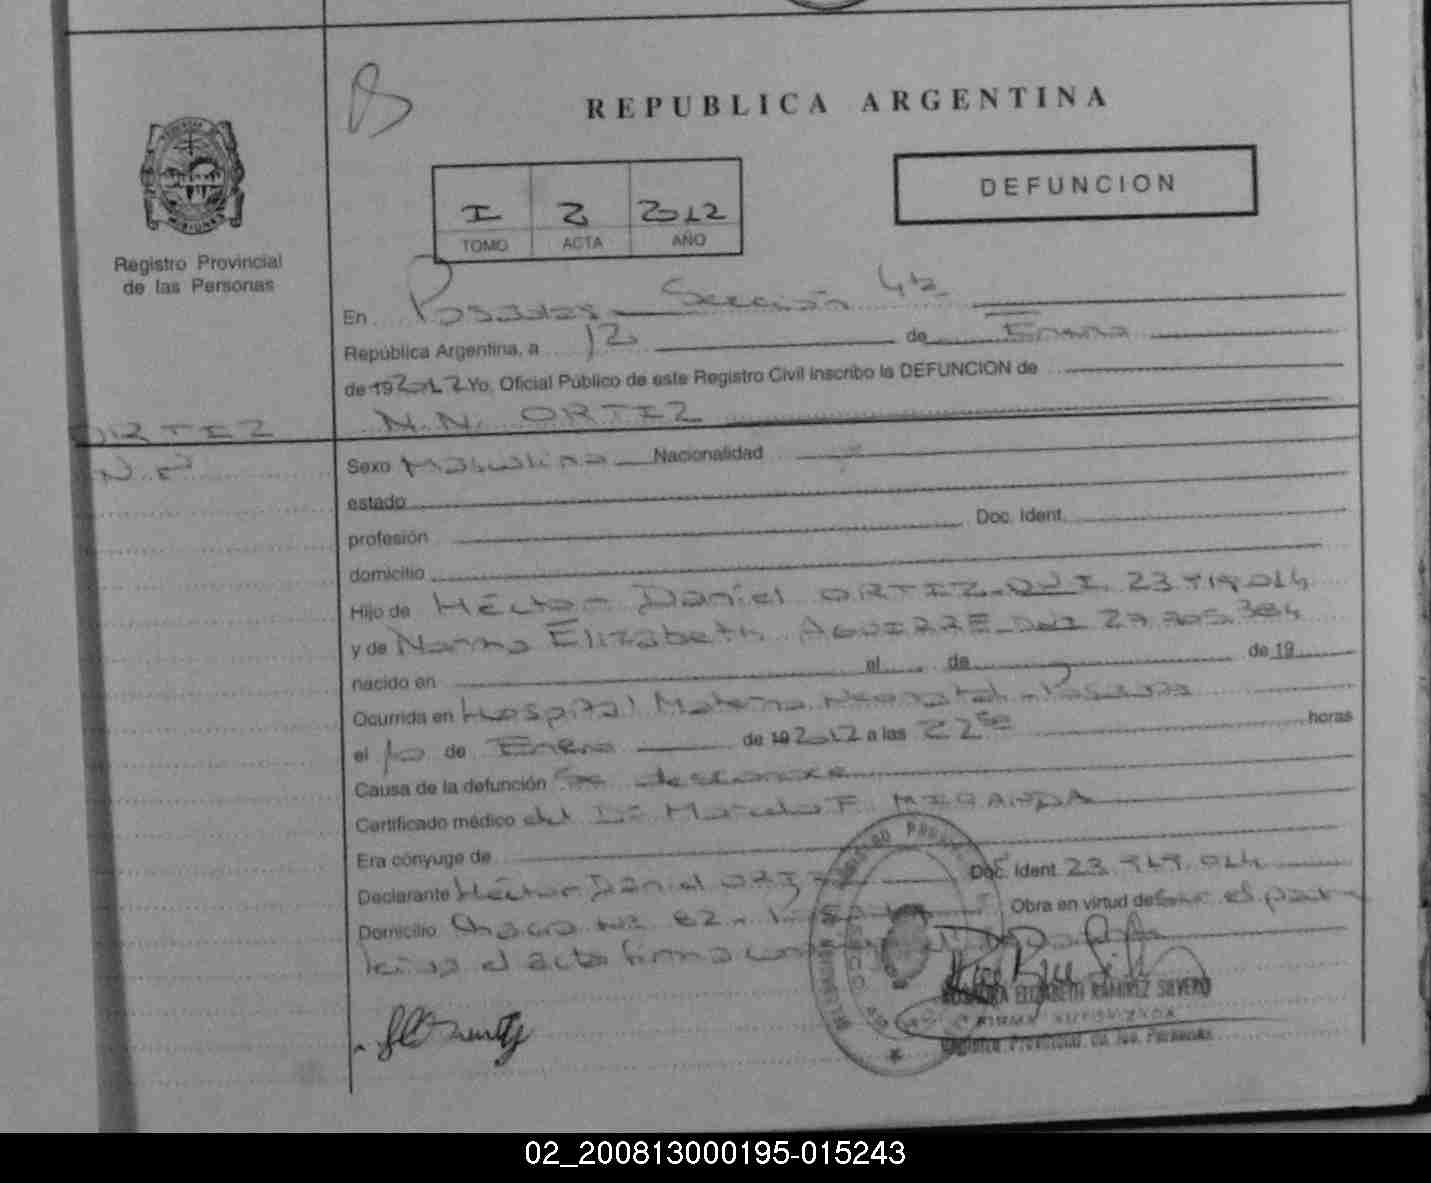 REPUBLICA ARGENTINA
DEFUNCION
I 2 2012
TOMO ACTA AÑO
Registro Provincial
de las Personas
En Posadas Sección 4ta
República Argentina, a 12 de Enero
de 19 2012 Yo, Oficial Público de este Registro Civil inscribo la DEFUNCION de
N.N. ORTIZ
ORTIZ
N.N
Sexo Masculino Nacionalidad
estado
profesión Doc. Ident.
domicilio
Hijo de Héctor Daniel ORTIZ DNI 23.
y de Norma Elizabeth AGUIRRE DNI
nacido en el de de 19
Ocurrida en Hospital Materno Neonatal - Posadas
el 10 de Enero de 19 2012 a las 22 50 horas
Causa de la defunción Se desconoce
Certificado médico del Dr Marcelo F. MIRANDA
Era cónyuge de
Declarante Héctor Daniel ORTIZ Doc. Ident. 23.
Domicilio Chacra 82 Obra en virtud de ser el padre
leída el acta firma
ELIZABETH RAMIREZ SILVERO
FIRMA AUTORIZADA
Registro Provincial de las Personas
02_200813000195-015243